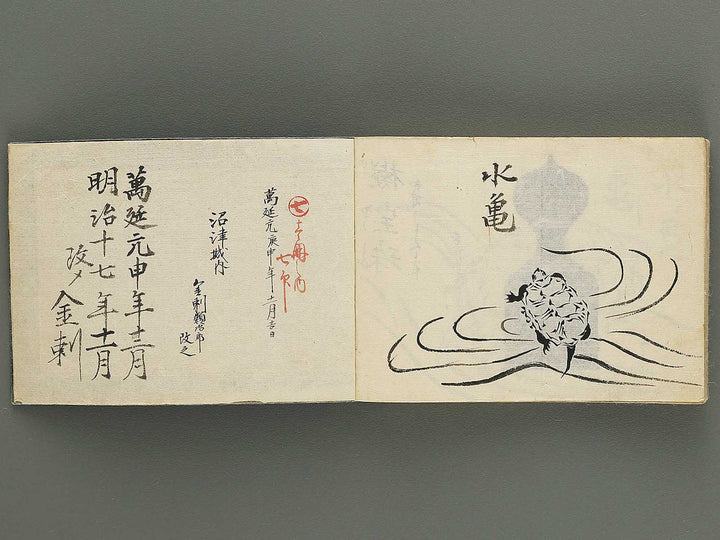 水亀
㊆
七印
萬延元庚申年十二月吉日
沼津城内
金刺
改之
萬延元申年十二月
明治十七年十一月
改〆
金刺